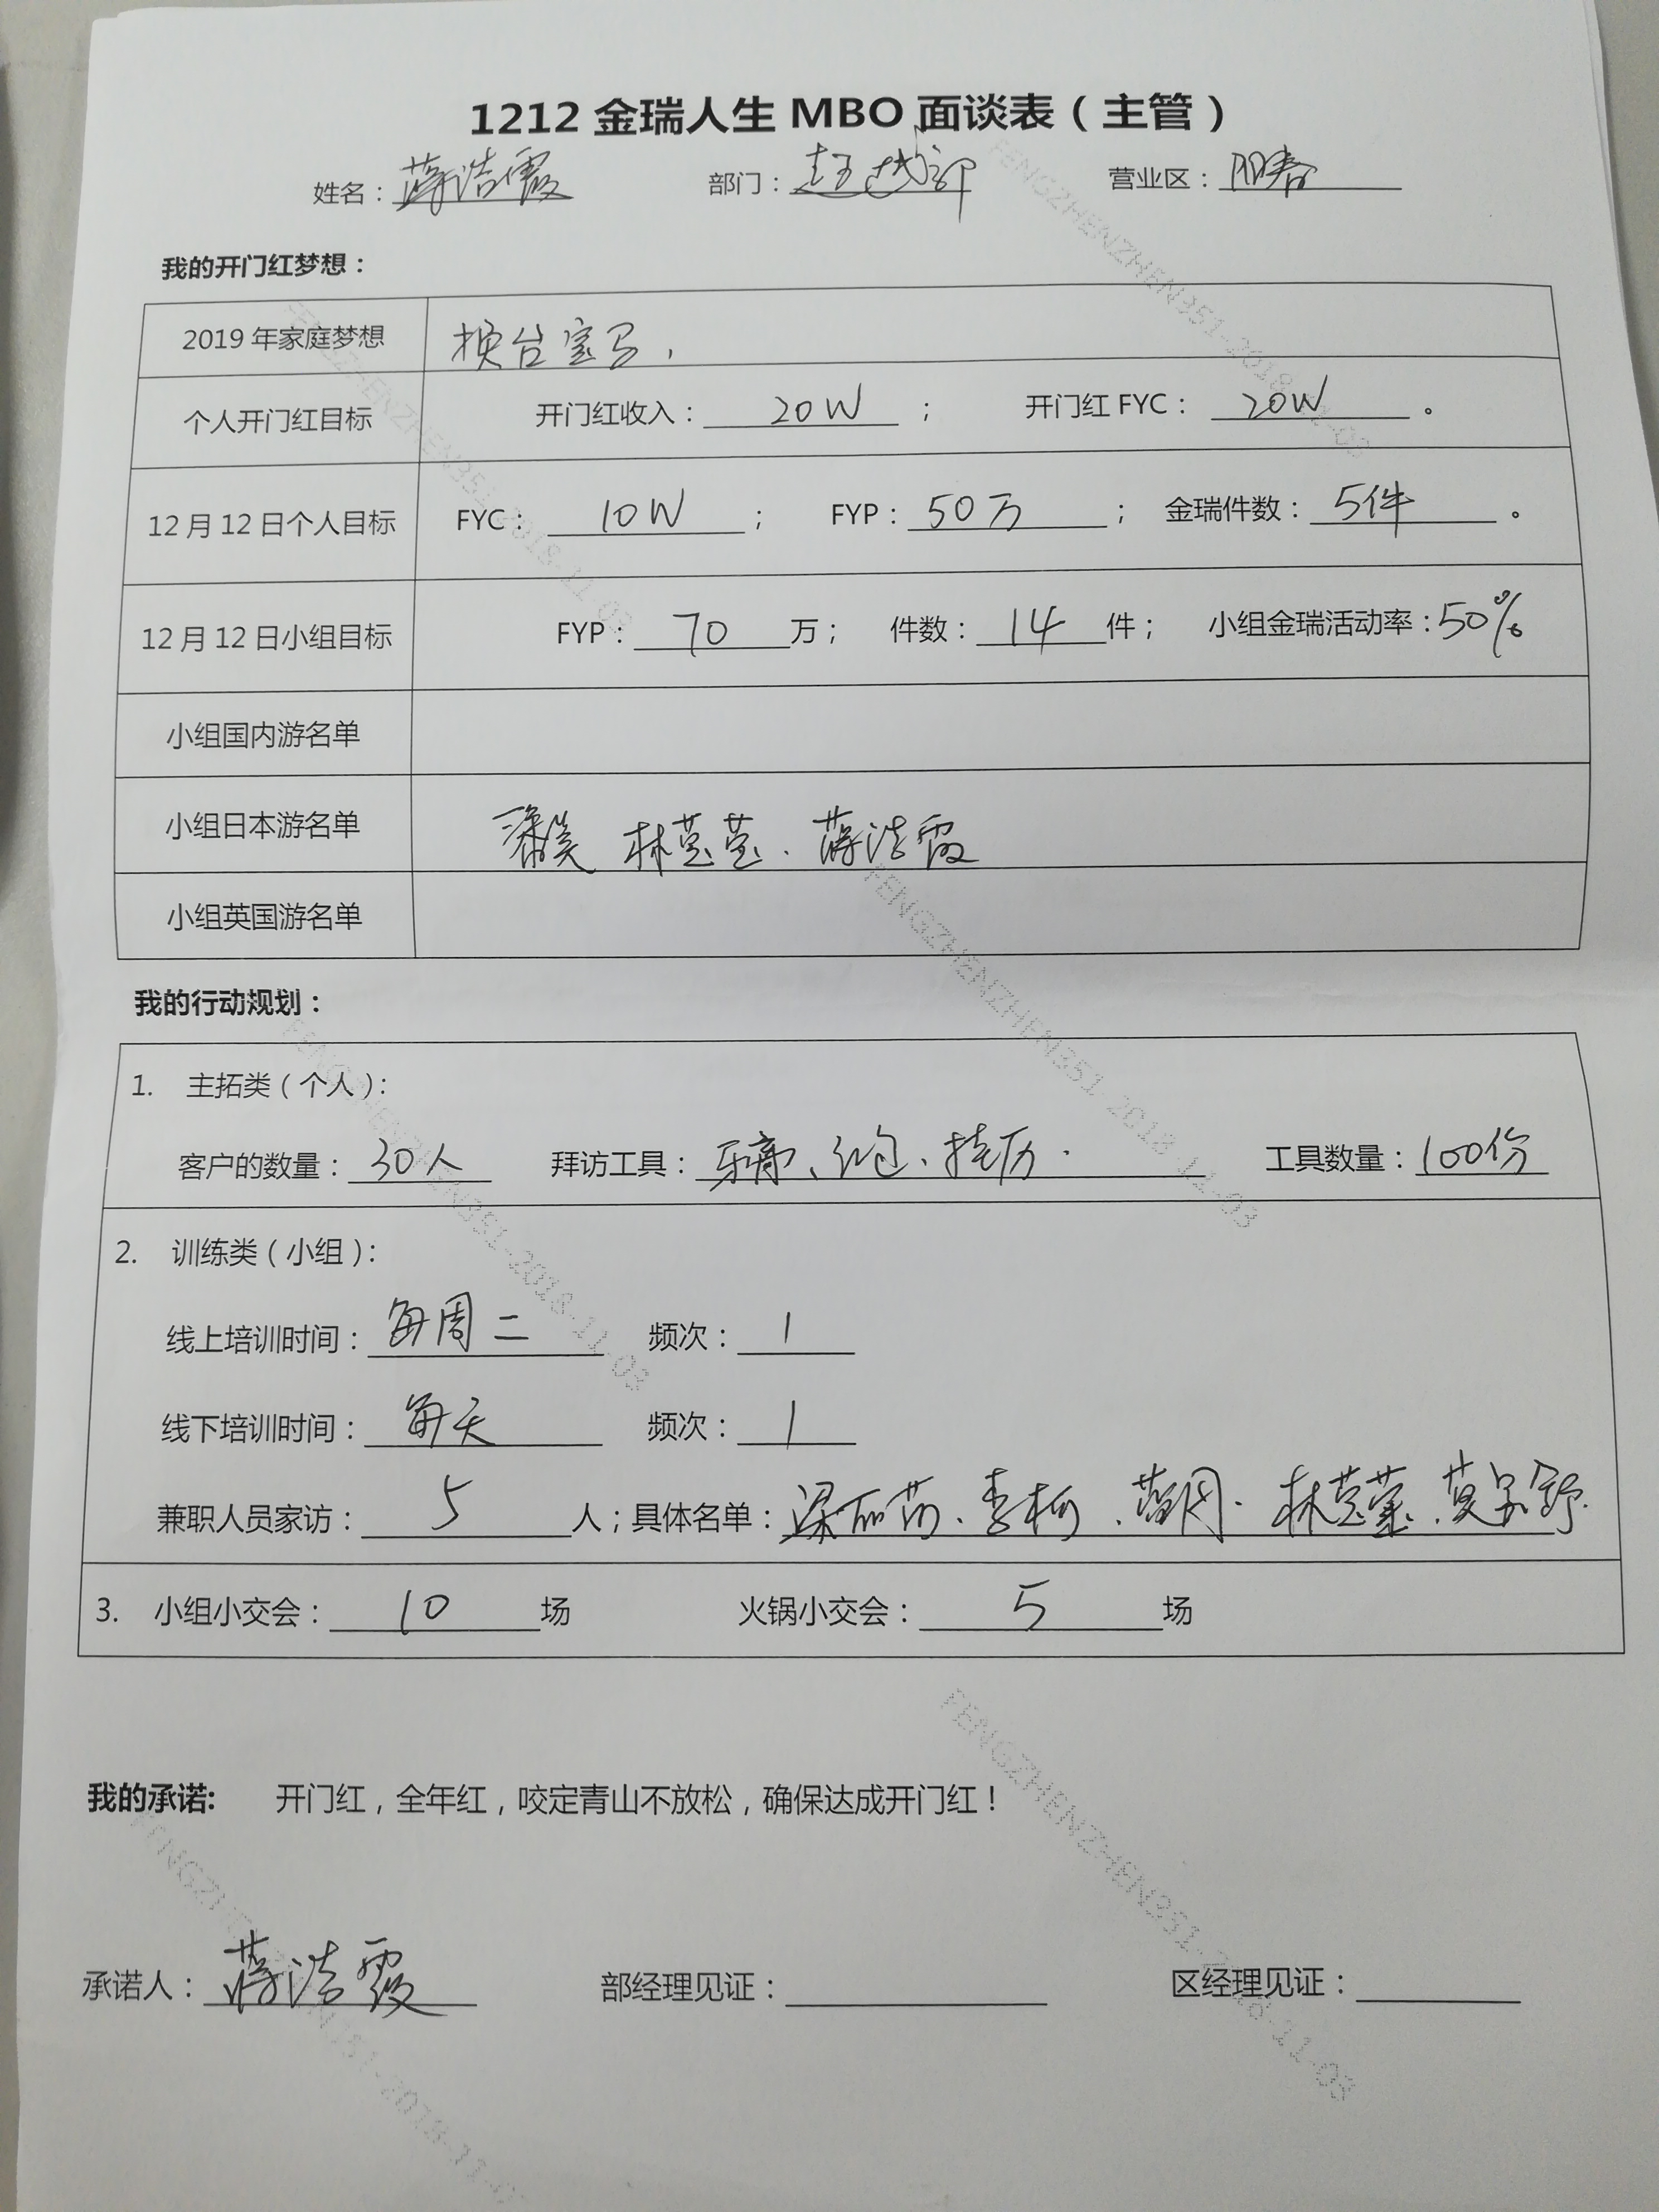 1212 金瑞人生 MBO 面谈表（主管）
姓名：蒋浩霞 部门：超越部 营业区：阳春
我的开门红梦想：
2019 年家庭梦想 换台宝马，
个人开门红目标 开门红收入：20W； 开门红 FYC：20W。
12 月 12 日个人目标 FYC：10W； FYP：50万； 金瑞件数：5件。
12 月 12 日小组目标 FYP：70万； 件数：14件； 小组金瑞活动率：50%
小组国内游名单
小组日本游名单 林莹莹．蒋浩霞
小组英国游名单
我的行动规划：
1. 主拓类（个人）：
客户的数量：30人 拜访工具：牙膏、红包、挂历． 工具数量：100份
2. 训练类（小组）：
线上培训时间：每周二 频次：1
线下培训时间：每天 频次：1
兼职人员家访：5人；具体名单：林莹莹
3. 小组小交会：10场 火锅小交会：5场
我的承诺: 开门红，全年红，咬定青山不放松，确保达成开门红！
承诺人：蒋浩霞 部经理见证： 区经理见证：
FENGZHENZHEN351-2018-11-03
FENGZHENZHEN351-2018-11-03
FENGZHENZHEN351-2018-11-03
FENGZHENZHEN351-2018-11-03
FENGZHENZHEN351-2018-11-03